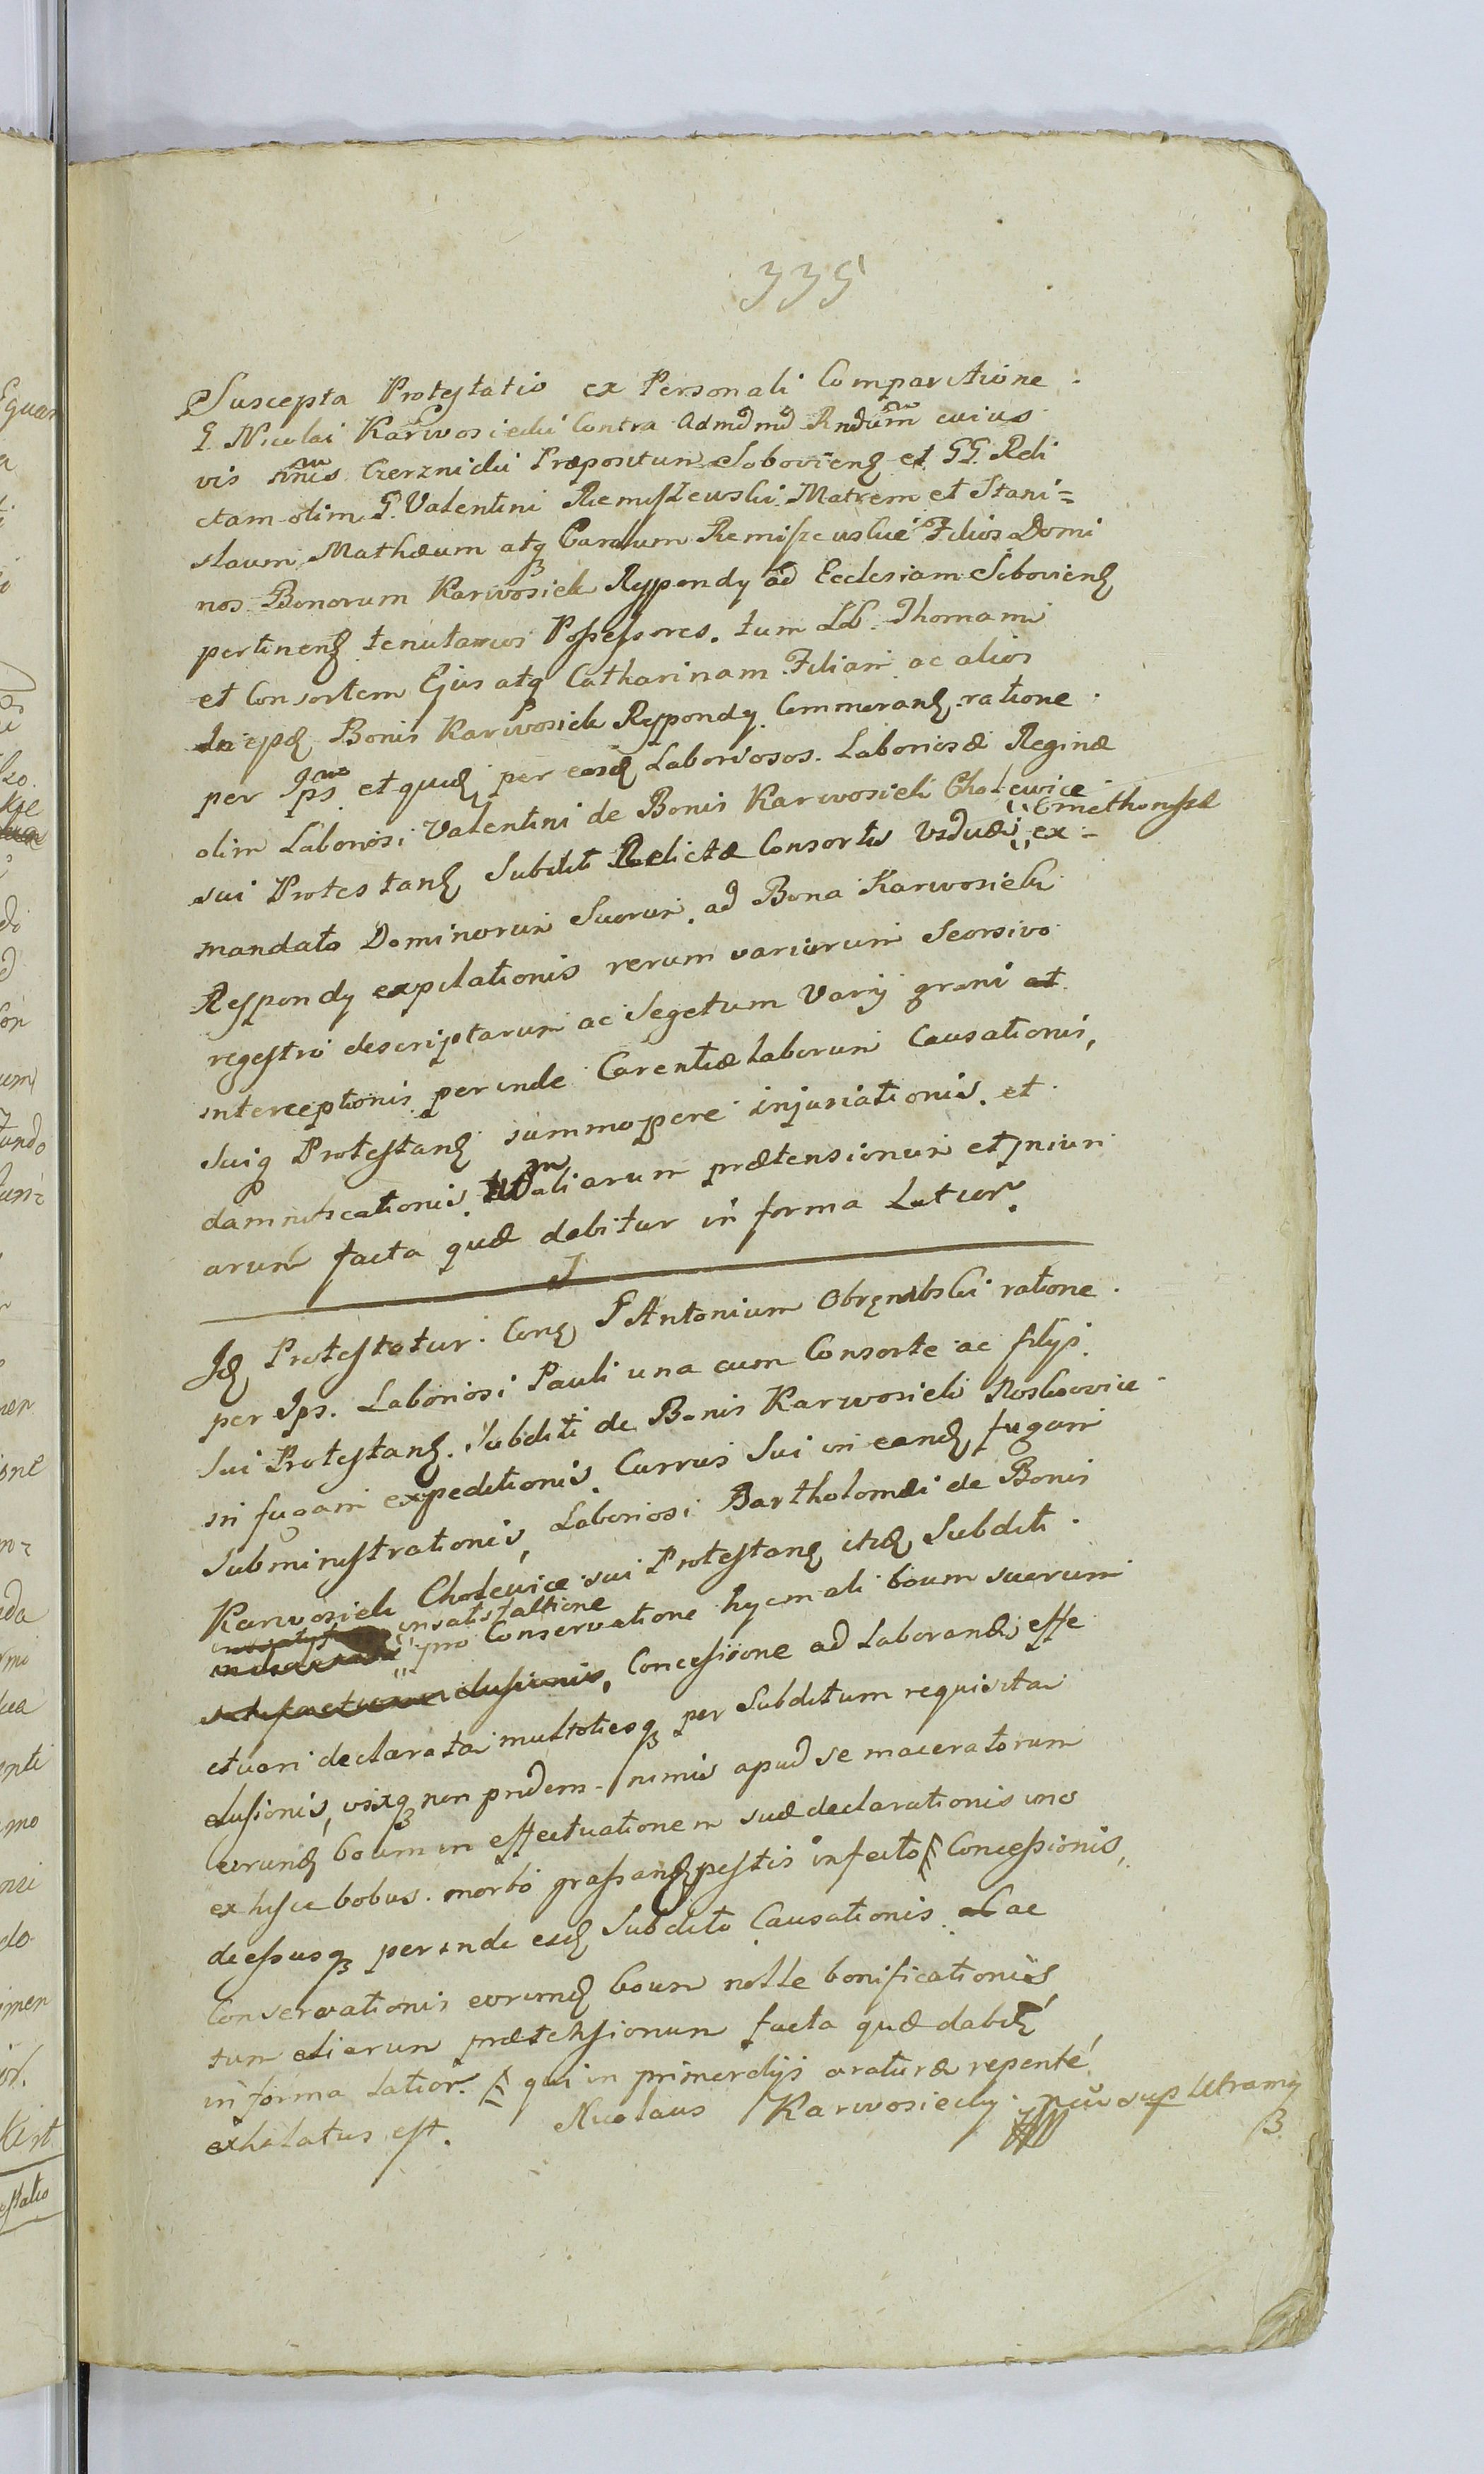 335
Suscepta Protestatio ex Personali Comparitione
G Nicolai Karwosiecki Contra Admdmd Rndum cuius
vis nnis Czerznicki Præpositum Sobovienẜ et GG. Reli
ctam olim G. Valentini Remiszewski Matrem et Stani=
slaum, Mathæum atq Carolum Remiszewskie Filios Domi
nos Bonorum Karwosieki Ryspondy ad Ecclesiam Sobovienẜ
pertinenẜ tenutarios Possessores. tum LL. Thomam
et Consortem Ejus atq Catharinam Filiam ac alios
In ejsdẜ Bonis Karwosieki Rypondy Commoranẜ ratione
per Ips et quidẜ per eosdẜ Laboriosos. Laboriosæ Reginæ
olim Laboriosi Valentini de Bonis Karwosieki Cholewice
sui Protestanẜ Subditi Relictæ Consortis Viduæ Cmethonissæ ex
mandato Dominorum Suorum ad Bona Karwosieki
Respondy expilationis rerum variarum Seorsivo
regestro descriptarum ac Segetum Varij grani at
interceptionis perinde Carentiæ laborum Causationis,
Suiq Protestanẜ summopere injuriationis et
damnificationis, aliarum prætensionum et Injuri
arum facta quæ dabitur in forma Latior.
Iẜ Protestatur Conẜ G Antonium Obrembski ratione
per Ips. Laboriosi Pauli una cum Consorte ac filijs
Sui Protestanẜ. Subditi de Bonis Karwosieki Noskowice
in fugam expeditionis. Currus Sui in eandẜ fugam
Subministrationis, Laboriosi Bartholomæi de Bonis
Karwosieki Cholewice sui Protestanẜ itidẜ Subditi
insatisfactione pro Conservatione hyemali boum suorum
elusionis, Concessione ad Laborandẜ effe
ctuari declarata multotiesq per Subditum requisita
elusionis, vixq non pridem nimis apud se maceratorum
eorundẜ boum in effectuationem suæ declarationis uno
ex hisce bobus morbo grassanẜ pestis infecto Concessionis,
decessusq perinde eidẜ Subdito Causationis ac
Conservationis eorundẜ boum nolle bonificationis,
tum aliarum prætensionum facta quæ dabitẜ
in forma latior. qui in primordijs araturæ repenté
exhalatus est. Nicolaus Karwosiecky sup Utramq